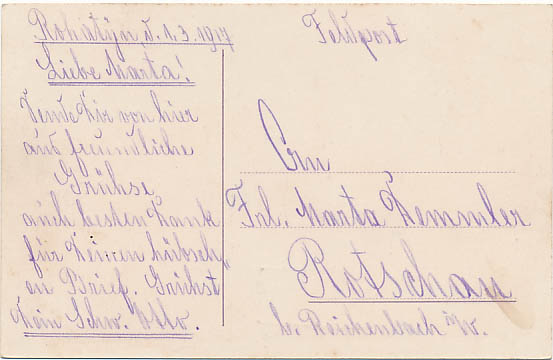 Rohatyn, d. 1.3.1917
Feldpost
Liebe Marta!
Sende Dir von hier
aus freundliche
Grühse
auch besten Dank
für Deinen hübsch"
en Brief. Grühst
Dein Schw. Otto.
An
Frl. Marta Demmler
Rotschau
b. Reichenbach i/V.